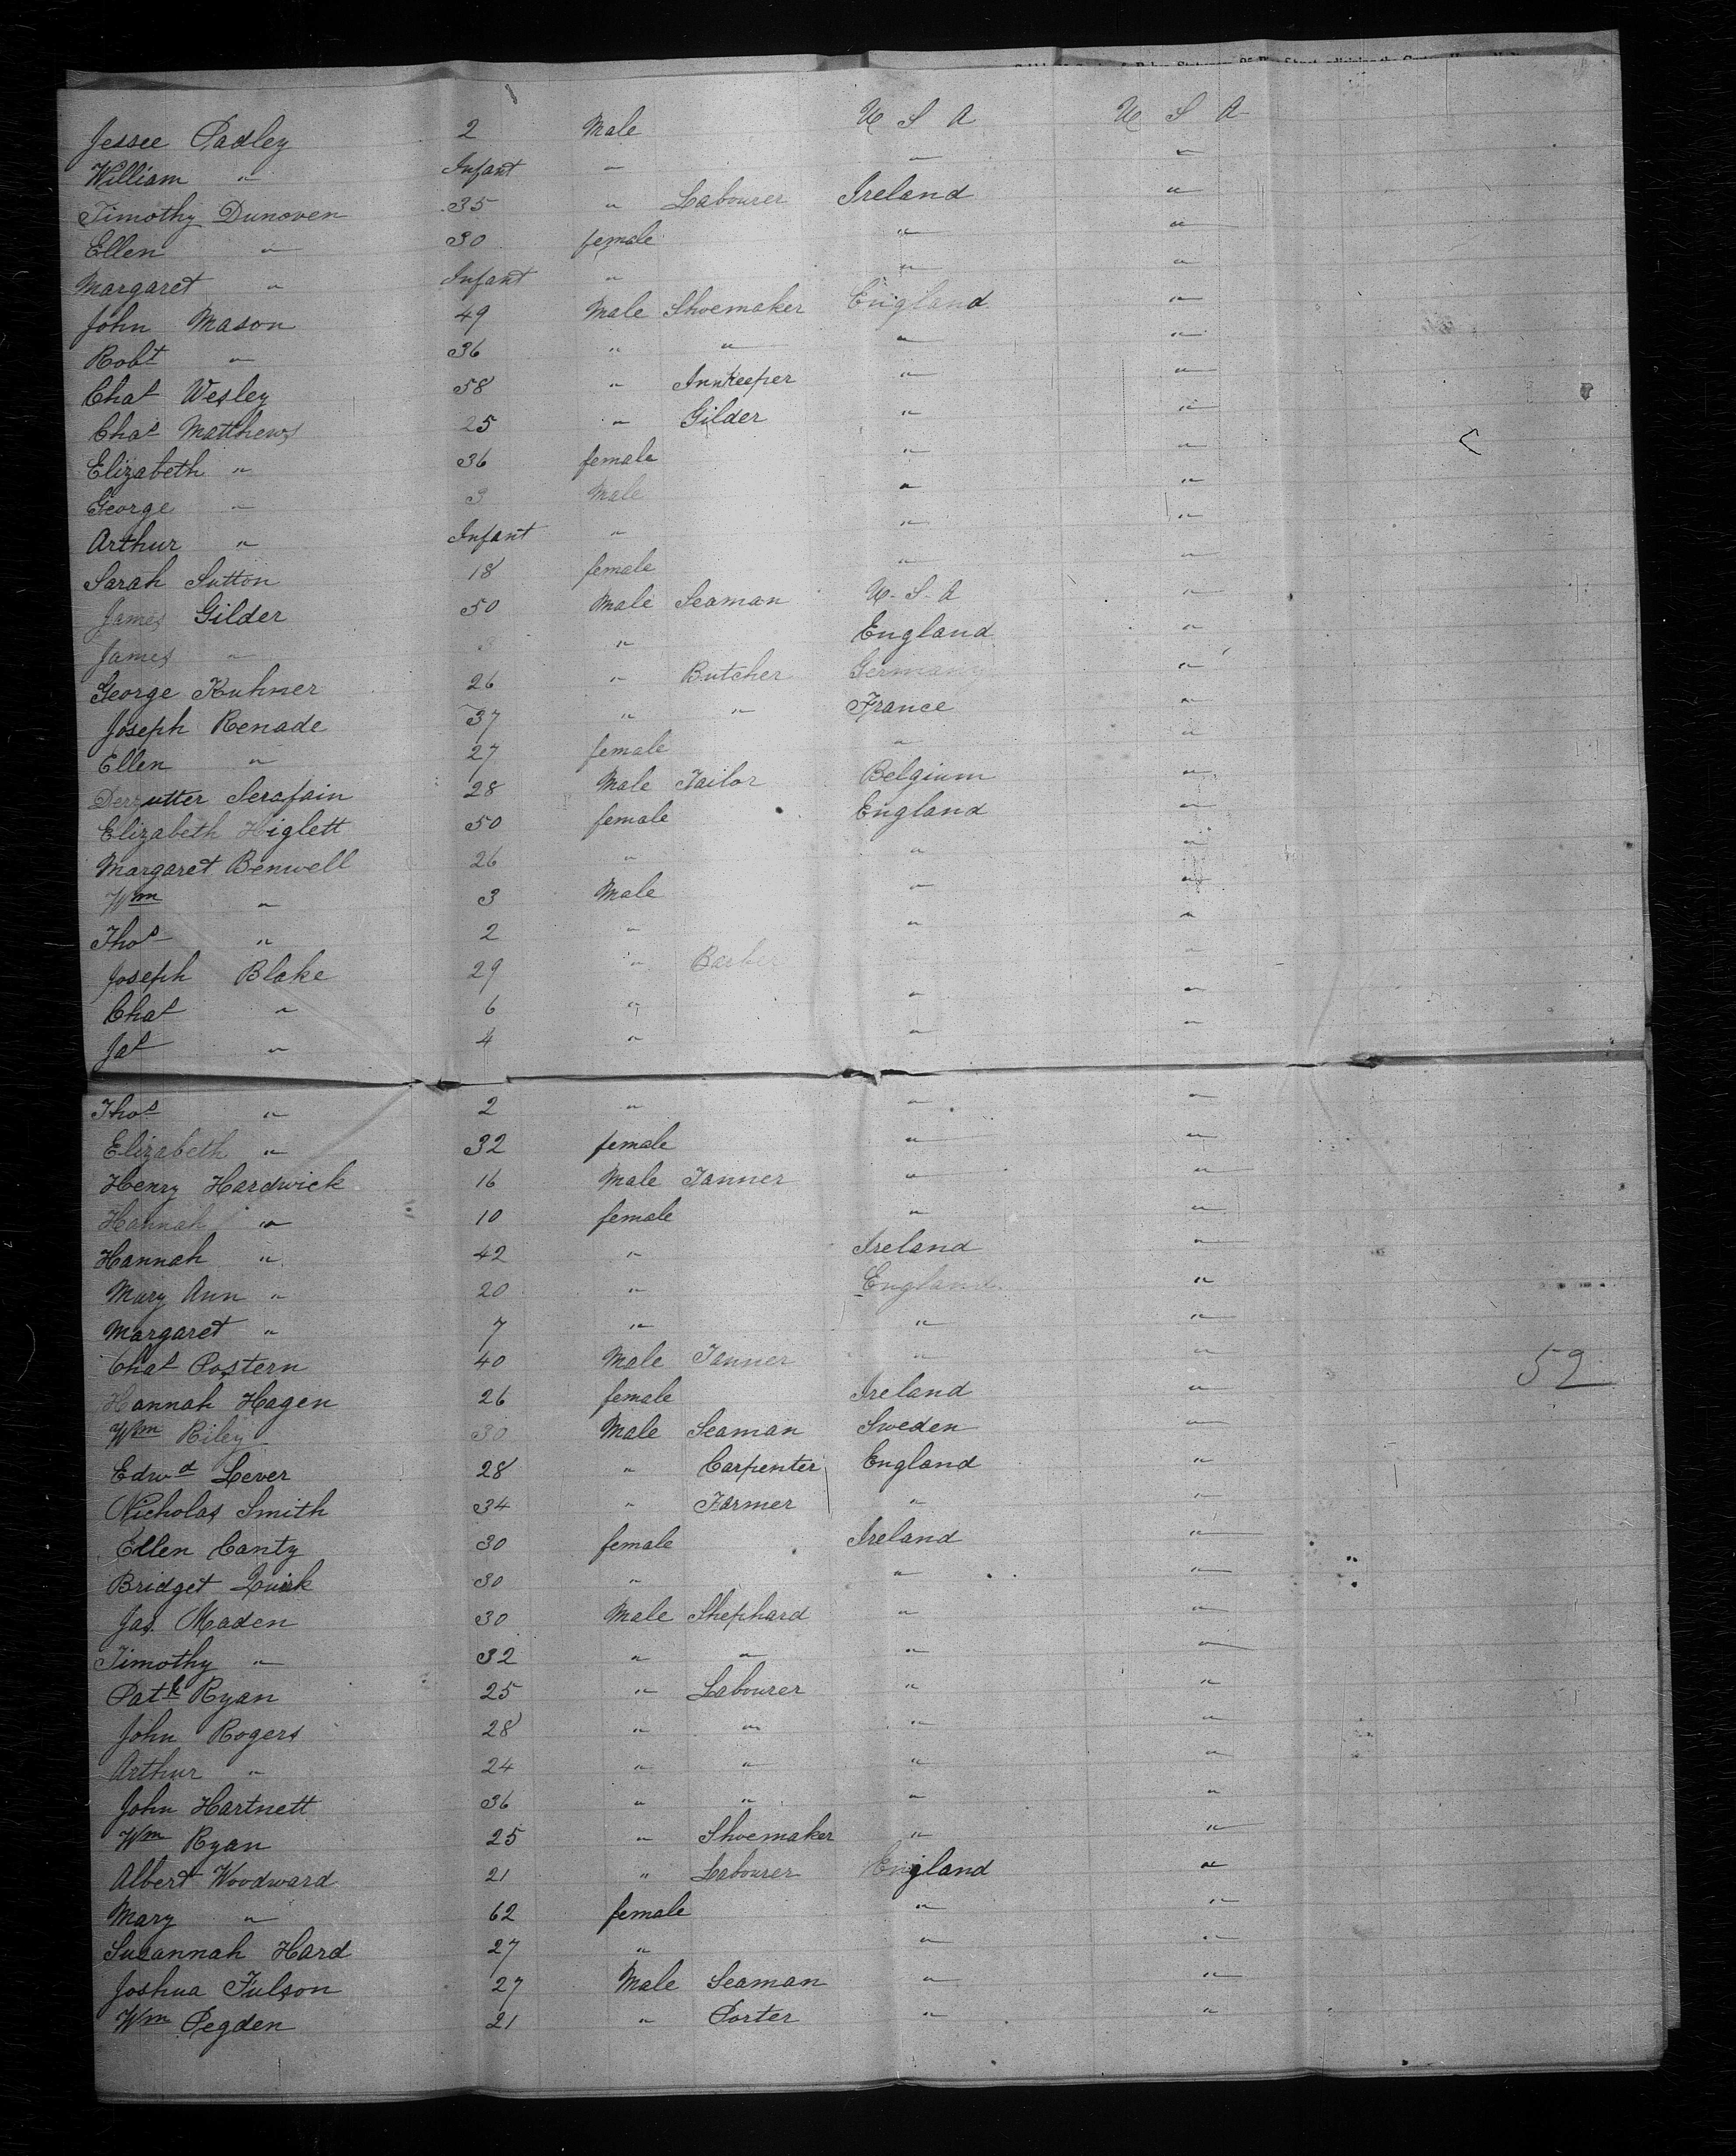 Jessee Padley 2 Male U S A U S A
William " Infant " " "
Timothy Dunoven 35 " Labourer Ireland "
Ellen " 30 female " "
Margaret " Infant " " "
John Mason 49 Male Shoemaker England "
Robt " 36 " " " "
Chas Wesley 58 " Innkeeper " "
Chas Matthews 25 " Gilder " "
Elizabeth " 36 female " "
George " 3 Male " "
Arthur " Infant " " "
Sarah Sutton 18 female " "
James Gilder 50 Male Seaman U. S. A "
James " " England "
George Kuhner 26 " Butcher Germany "
Joseph Renade 37 " " France "
Ellen " 27 female " "
Serafain 28 Male Tailor Belgium "
Elizabeth Higlett 50 female England "
Margaret Benwell 26 " " "
Wm " 3 Male " "
Thos " 2 " " "
Joseph Blake 29 " Barber "
Chas " 6 " " "
Jas " 4 " " "
Thos " 2 " " "
Elizabeth " 32 female " "
Henry Hardwick 16 Male Tanner " "
Hannah " 10 female " "
Hannah " 42 " Ireland "
Mary Ann " 20 " England "
Margaret " 7 " " "
Chas Postern 40 Male Tanner " "
Hannah Hagen 26 female Ireland "
Wm Riley 30 Male Seaman Sweden "
Edwd Lever 28 " Carpenter England "
Nicholas Smith 34 " Farmer " "
Ellen Canty 30 female Ireland "
Bridget Quirk 30 " " "
Jas. Maden 30 Male Shephard " "
Timothy " 32 " " " "
Patk Ryan 25 " Labourer " "
John Rogers 28 " " " "
Arthur " 24 " " " "
John Hartnett 36 " " " "
Wm Ryan 25 " Shoemaker " "
Albert Woodward 21 " Labourer England "
Mary " 62 female " "
Susannah Hard 27 " " "
Joshua Fulson 27 Male Seaman " "
Wm Pegden 21 " Porter " "
52